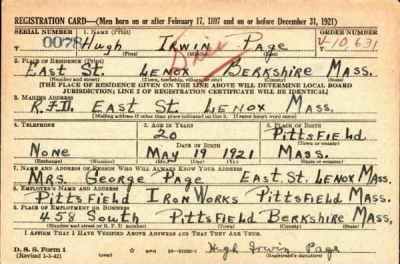 REGISTRATION CARD—(Men born on or after February 17, 1897 and on or before December 31, 1921)
SERIAL NUMBER 1. NAME (Print) ORDER NUMBER
0078 Hugh Irwin Page 10,631
(First) (Middle) (Last)
2. PLACE OF RESIDENCE (Print)
East St. Lenox Berkshire Mass.
(Number and street) (Town, township, village, or city) (County) (State)
[THE PLACE OF RESIDENCE GIVEN ON THE LINE ABOVE WILL DETERMINE LOCAL BOARD
JURISDICTION; LINE 2 OF REGISTRATION CERTIFICATE WILL BE IDENTICAL]
3. MAILING ADDRESS
R.F.D. East St. Lenox Mass.
[Mailing address if other than place indicated on line 2. If same insert word same]
4. TELEPHONE 5. AGE IN YEARS 6. PLACE OF BIRTH
20 Pittsfield
DATE OF BIRTH (Town or county)
None May 19 1921 Mass.
(Exchange) (Number) (Mo.) (Day) (Yr.) (State or country)
7. NAME AND ADDRESS OF PERSON WHO WILL ALWAYS KNOW YOUR ADDRESS
Mrs. George Page East St. Lenox Mass.
8. EMPLOYER'S NAME AND ADDRESS
Pittsfield Iron Works Pittsfield Mass.
9. PLACE OF EMPLOYMENT OR BUSINESS
458 South Pittsfield Berkshire Mass.
(Number and street or R. F. D. number) (Town) (County) (State)
I AFFIRM THAT I HAVE VERIFIED ABOVE ANSWERS AND THAT THEY ARE TRUE.
D. S. S. Form 1 Hugh Irwin Page
(Revised 1-1-42) GPO (Registrant's signature)